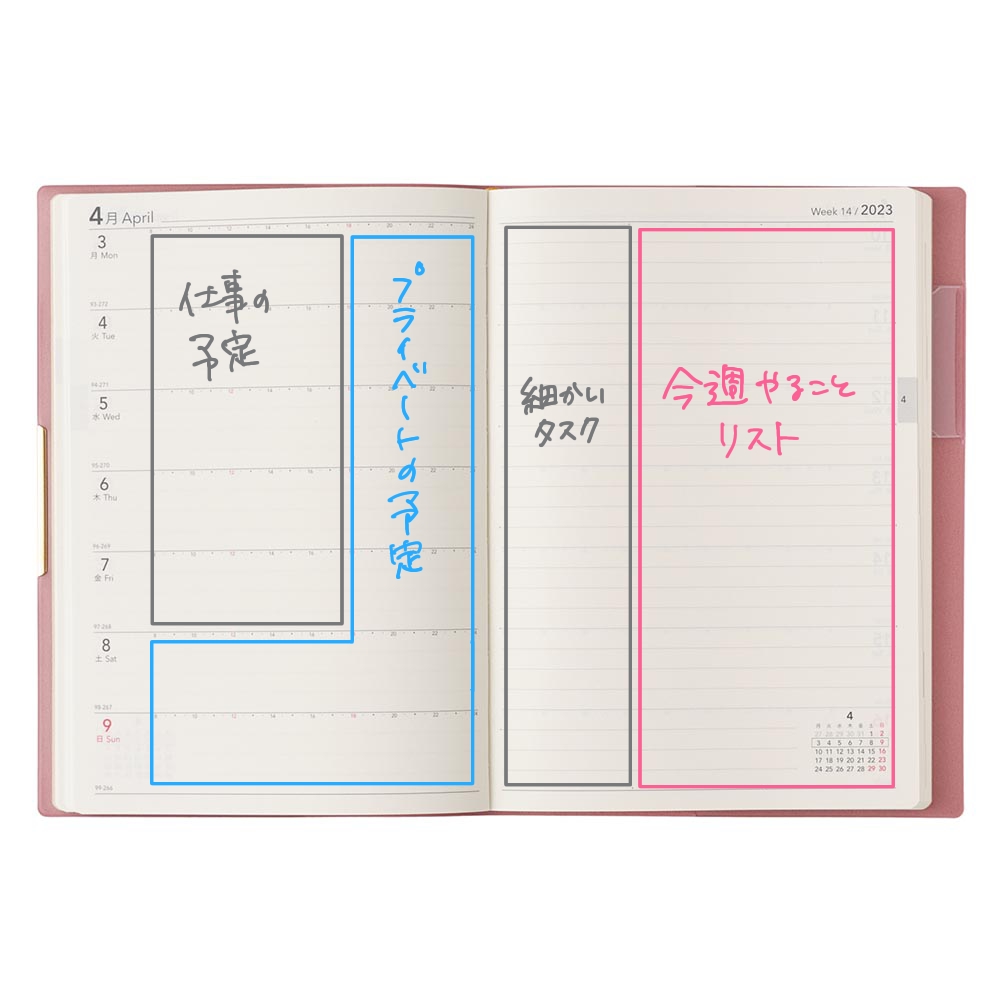 4月 April
8 · 10 · 12 · 14 · 16 · 18 · 20 · 22 · 24
3
月 Mon
93-272
4
火 Tue
94-271
5
水 Wed
95-270
6
木 Thu
96-269
7
金 Fri
97-268
8
土 Sat
98-267
9
日 Sun
99-266
仕事の
予定
プライベートの予定
Week 14 / 2023
細かい
タスク
今週やること
リスト
4
4
月 火 水 木 金 土 日
27 28 29 30 31 1 2
3 4 5 6 7 8 9
10 11 12 13 14 15 16
17 18 19 20 21 22 23
24 25 26 27 28 29 30